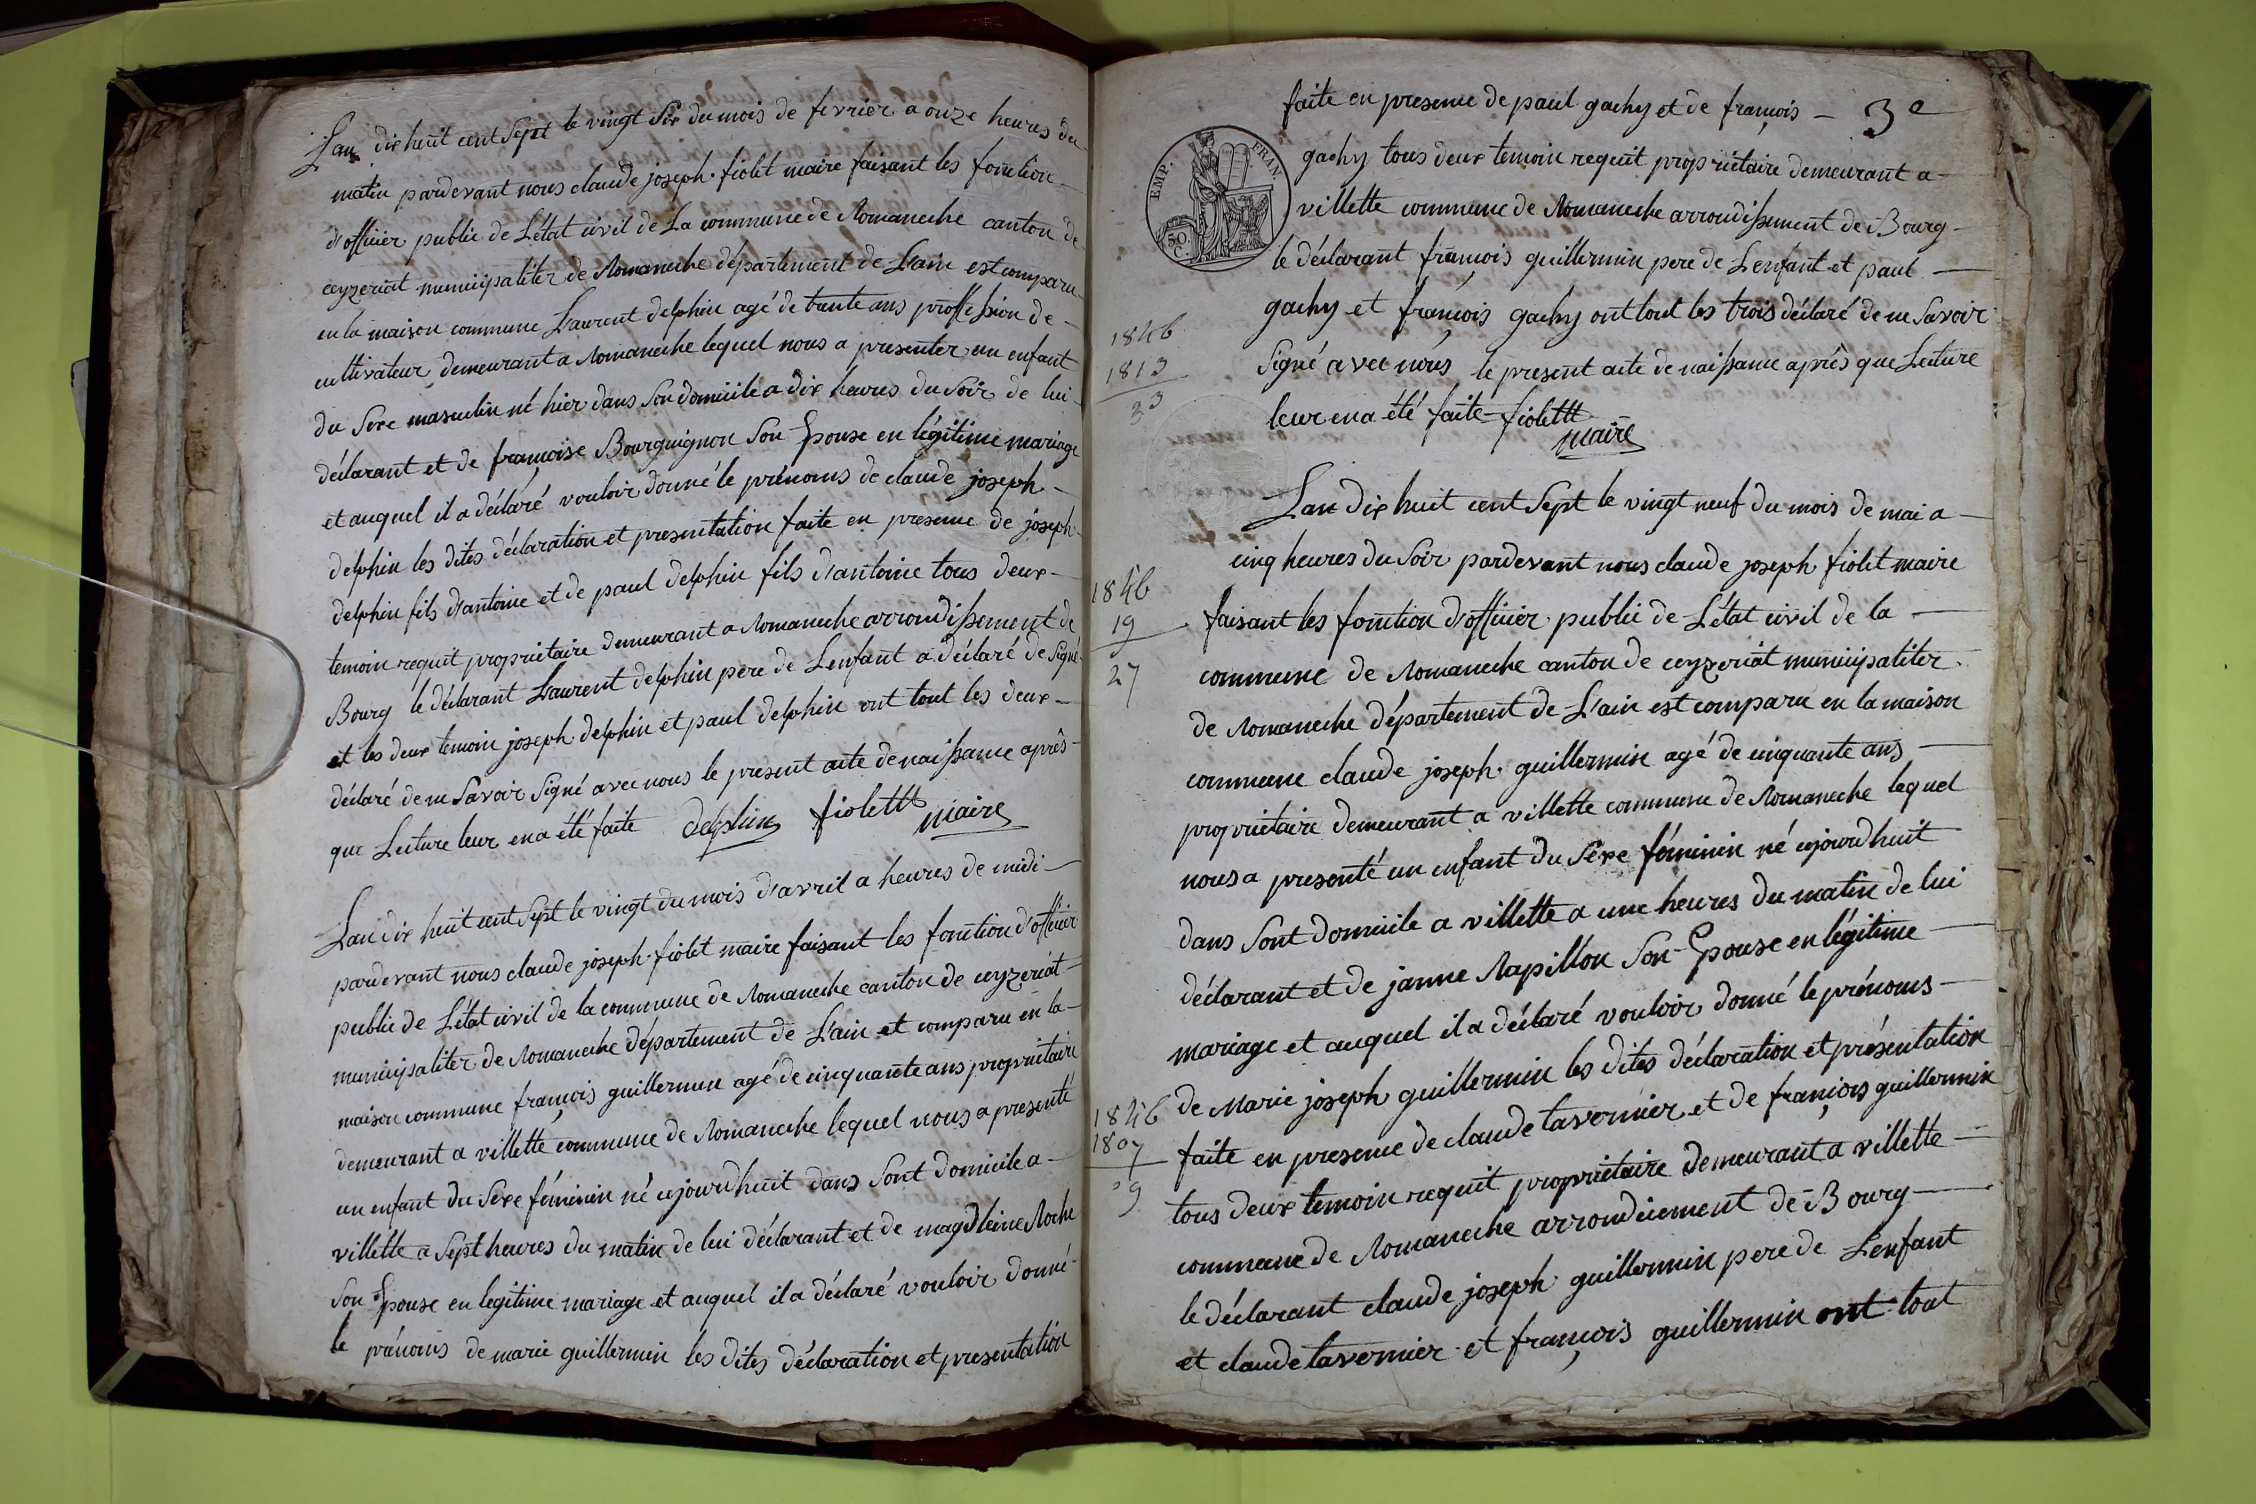 Lan dix huit cent Sept le vingt Six du mois de fevrier a onze heures du
matin pardevant nous claude joseph fiolet maire faisant les fonction
d'officier public de L'état civil de La commune de Romaneche canton de
ceyzeriat municipaliter de Romaneche département de L'ain est comparu
en la maison commune Laurent delphin agé de trente ans proffession de
cultivateur demeurant a Romaneche lequel nous a presenter un enfant
du Sexe masculin né hier dans Son domicile a dix heures du Soir de lui
déclarant et de françoise Bourguignon Son Epouse en légitime mariage
et auquel il a déclaré vouloir donné le prénoms de claude joseph
delphin les dites déclaration et presentation faite en presence de joseph
delphin fils d'antoine et de paul delphin fils d'antoine tous deux
temoin requit propriétaire demeurant a Romaneche arrondissement de
Bourg le déclarant Laurent delphin pere de L'enfant a déclaré de Signé
et les deux temoin joseph delphin et paul delphin ont tout les deux
déclaré de ne Savoir Signé avec nous le present acte de naissance après
que Lecture leur en a été faite delphin fiolett
maire
Lan dix huit cent Sept le vingt du mois d'avril a heures de midi
pardevant nous claude joseph fiolet maire faisant les fonction d'officier
public de L'état civil de la commune de Romaneche canton de ceyzeriat
municipaliter de Romaneche département de L'ain et comparu en la
maison commune françois guillermin agé de cinquante ans propriétaire
demeurant a villette commune de Romaneche lequel nous a presenté
un enfant du Sexe féminin né ajourdhuit dans Sont domicile a
villette a Sept heures du matin de lui déclarant et de magdleine Roche
Son Epouse en legitime mariage et auquel il a déclaré vouloir donné
le prénoms de marie guillermin les dites déclaration et presentation
faite en presence de paul gachy et de françois 3e
EMP. FRAN.
50 C.
gachy tous deux temoin requit propriétaire demeurant a
villette commune de Romaneche arrondissement de Bourg
le déclarant françois guillermin pere de L'enfant et paul
gachy et françois gachy ont tout les trois déclaré de ne Savoir
Signé avec nous le present acte de naissance après que Lecture
leur en a été faite fiolett
maire
1846
1813
33
Lan dix huit cent Sept le vingt neuf du mois de mai a
cinq heures du Soir pardevant nous claude joseph fiolet maire
faisant les fonction d'officier public de L'état civil de la
commune de Romaneche canton de ceyzeriat municipaliter
de Romaneche département de L'ain est comparu en la maison
commune claude joseph guillermin agé de cinquante ans
propriétaire demeurant a villette commune de Romaneche lequel
nous a presenté un enfant du Sexe féminin né ajourdhuit
dans Sont domicile a villette a une heures du matin de lui
déclarant et de janne Rapillon Son Epouse en légitime
mariage et auquel il a déclaré vouloir donné le prénoms
de Marie joseph guillermin les dites déclaration et présentation
faite en presence de claude tavernier et de françois guillermin
tous deux temoin requit propriétaire demeurant a villette
commune de Romaneche arrondicement de Bourg
le déclarant claude joseph guillermin pere de L'enfant
et claude tavernier et françois guillermin ont tout
1846
19
27
1846
1807
39